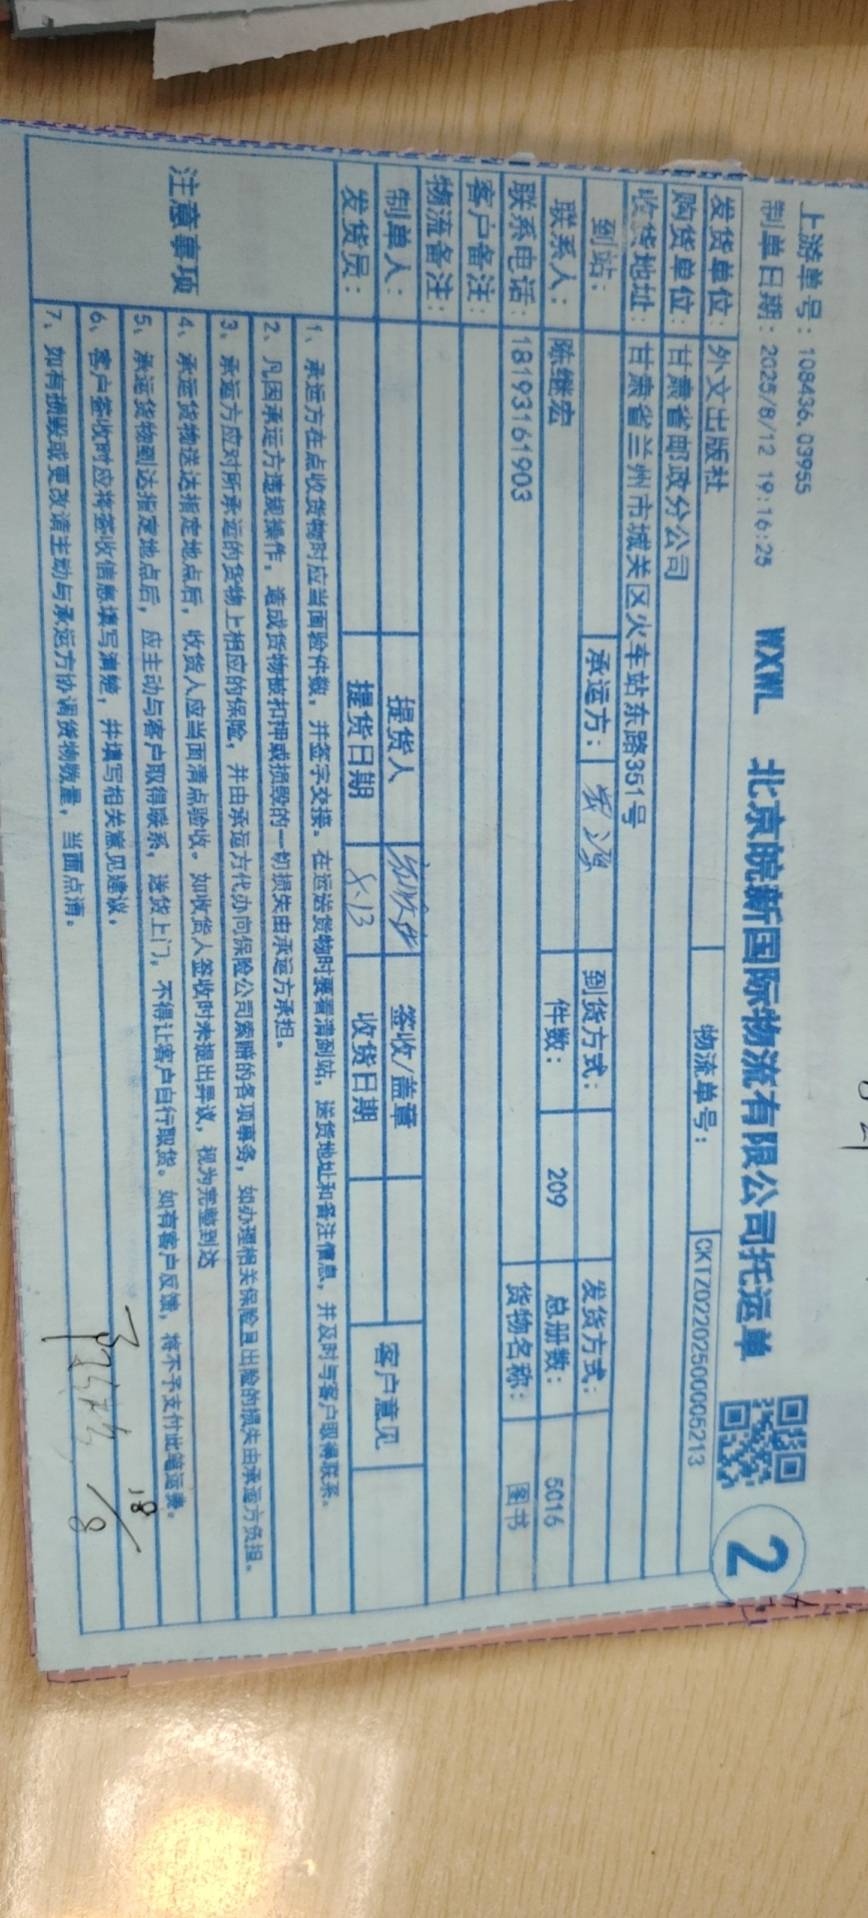 上游单号：108436、03955
制单日期：2025/8/12 19:16:25
WXWL 北京皖新国际物流有限公司托运单
2
发货单位：外文出版社 物流单号：CKTZ02202500005213
购货单位：甘肃省邮政分公司
收货地址：甘肃省兰州市城关区火车站东路351号
到站： 承运方： 到货方式： 发货方式：
联系人：陈继宏 件数：209 总册数：5016
联系电话：18193161903 货物名称：图书
客户备注：
物流备注：
制单人： 提货人 签收/盖章 客户意见
发货员： 提货日期 8.13 收货日期
注意事项
1、承运方在点收货物时应当面验件数，并签字交接。在运送货物时要看清到站，送货地址和备注信息，并及时与客户取得联系。
2、凡因承运方违规操作，造成货物被扣押或损毁的一切损失由承运方承担。
3、承运方应对所承运的货物上相应的保险，并由承运方代办向保险公司索赔的各项事务，如办理相关保险且出险的损失由承运方负担。
4、承运货物送达指定地点后，收货人应当面清点验收。如收货人签收时未提出异议，视为完整到达
5、承运货物到达指定地点后，应主动与客户取得联系，送货上门，不得让客户自行取货。如有客户反馈，将不予支付此笔运费。
6、客户签收时应将签收信息填写清楚，并填写相关意见建议。
7、如有损毁或更改请主动与承运方协调货物数量，当面点清。
18/8